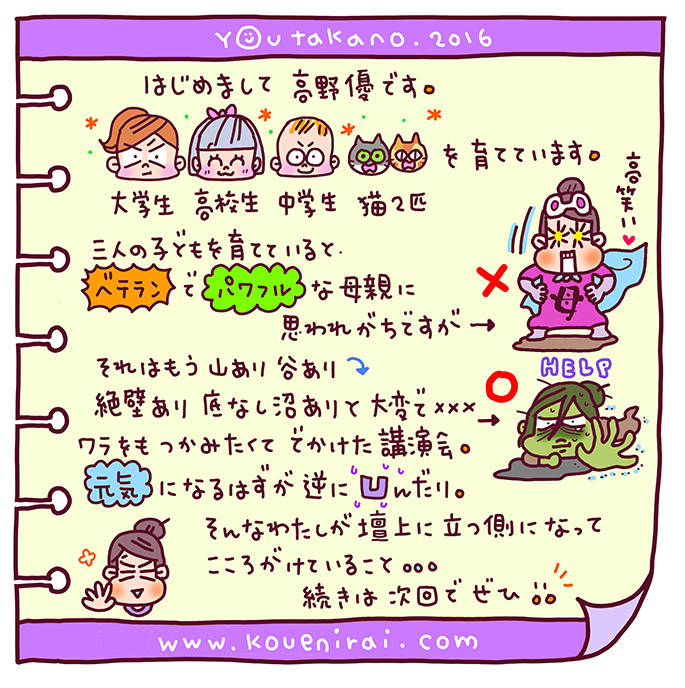 Youtakano.2016
はじめまして 高野優です。
を育てています。
大学生 高校生 中学生 猫2匹
高笑い
三人の子どもを育てていると、
ベテランでパワフルな母親に
思われがちですが→
母
HELP
それはもう山あり谷あり
絶壁あり底なし沼ありと大変で×××→
ワラをもつかみたくてでかけた講演会。
元気になるはずが逆に凹んだり。
そんなわたしが壇上に立つ側になって
こころがけていること...
続きは次回でぜひ
www.kouenirai.com